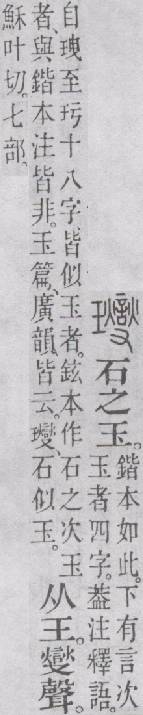 石之玉。鍇本如此。下有言次
玉者四字。葢注釋語。
自玴至玗十八字皆似玉者。鉉本作石之次玉
者、與鍇本注皆非。玉篇、廣韻、皆云。石似玉。
从王。燮聲。
穌叶切。七部。